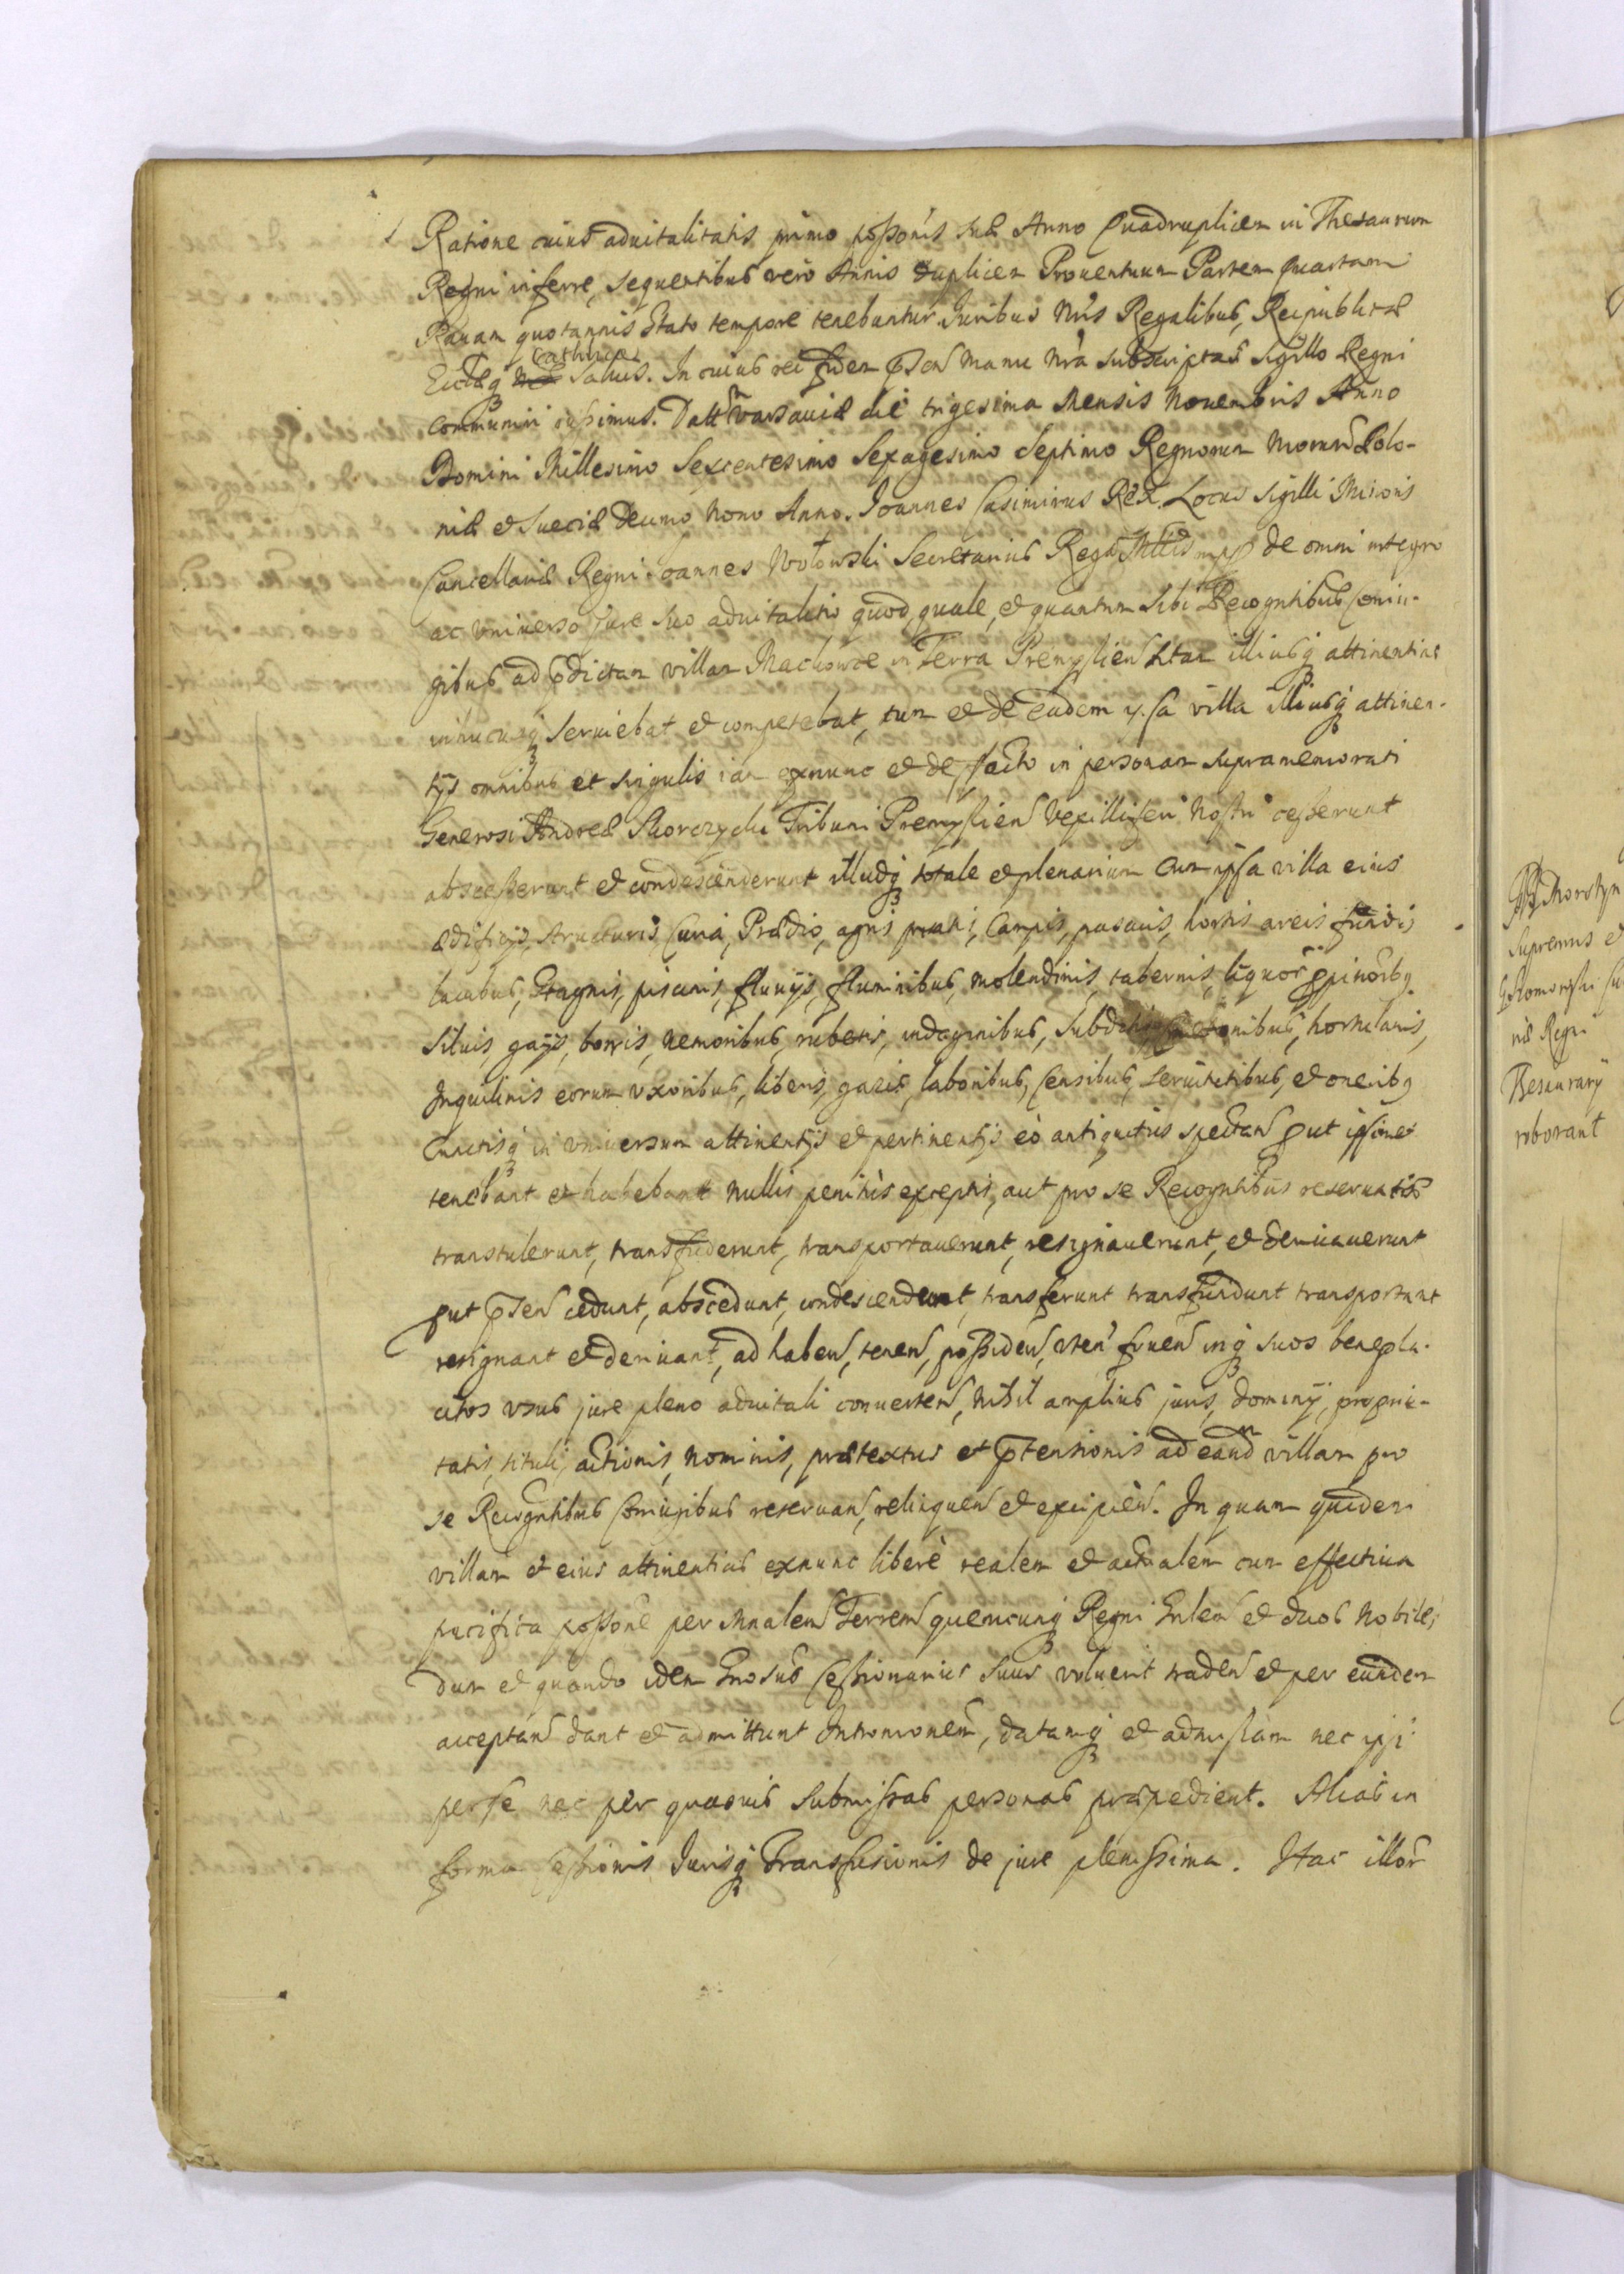 Ratione cuius aduitalitatis primo possonis suæ Anno Quadruplicem in Thesaurum
Regni inferre, sequentibus vero Annis duplicem Prouentuum Partem Quartam
Rauam quotannis Stato tempore tenebuntur Iuribus Nris Regalibus, Reipublicæ
Eccliæq Catholicæ saluis. In cuius rei fidem pnten Manu Nra subscriptas Sigillo Regni
communiri iussimus. Datt Varsauiæ die trigesima Mensis Nouembris Anno
Domini Millesimo Sexcentesimo Sexagesimo Septimo Regnorum Nrorum Polo-
niæ et Sueciæ Decimo Nono Anno. Joannes Casimirus Rex. Locus Sigilli Minoris
Cancellariæ Regni. Joannes Wołowski Secretarius Regiæ Mttis mpp de omni integro
ac vniuerso jure suo aduitalitio quod, quale, et quantum sibi Recogntibus Coniu-
gibus ad pdictam villam Mackowce in Terra Premyslien sitam illiusq attinentias
inhucusq seruiebat et competebat, tum et de eadem ipsa villa illiusq attinen-
tijs omnibus et singulis iam exnunc et de facto in personam supramemorati
Generosi Andreæ Skorczycki Tribuni Premyslien Vexilliferi Nostri cesserunt
abscesserunt et condescenderunt illudq totale et plenarium cum ipsa villa eius
ædificijs, structuris, Curia, Prædio, agris, pratis, Campis, pascuis, hortis areis fundis
lacubus, Stagnis, piscinis, fluuijs, fluminibus, molendinis, tabernis, liquor ppinorbq
siluis, gajis, borris, nemoribus, rubetis, indaginibus, Subditis Cmetonibus, hortulanis,
Inquilinis eorum vxoribus, liberis, gazis, laboribus, Censibus, seruitutibus, et oneribq
Cunctisq in vniuersum attinentijs et pertinentijs eo antiquitus spectan put ipsimet
tenebant et habebant nullis penitus exceptis, aut pro se Recogntibus reseruatis
transtulerunt, transfuderunt, transportauerunt, resignauerunt, et deriuauerunt
put pnten cedunt, abscedunt, condescendunt, transferunt transfundunt transportant
resignant et deriuant, ad haben, tenen, possiden, vten fruen inq suos benepla-
citos vsus jure pleno aduitali conuerten, Nihil amplius juris, dominij, proprie-
tatis, tituli, actionis, nominis, prætextus et ptensionis ad eandm villam pro
se Recogntibus Coniugibus reseruan, relinquen et excipien. In quam quidem
villam et eius attinentias exnunc libere realem et actualem cum effectiua
pacifica possone per Mnalem Terren quemcunq Regni Gnlem et duos Nobiles
dum et quando idem Gnosus Cessionarius suus voluerit traden et per eundem
acceptan dant et admittunt Intromonem, datamq et admissam nec ipsi
per se nec per quasuis submissas personas præpedient. Alias in
forma Cessionis Jurisq Transfusionis de jure plenissima. Hac illor
Supremus et
niæ Regni
Thesaurarij
roborant